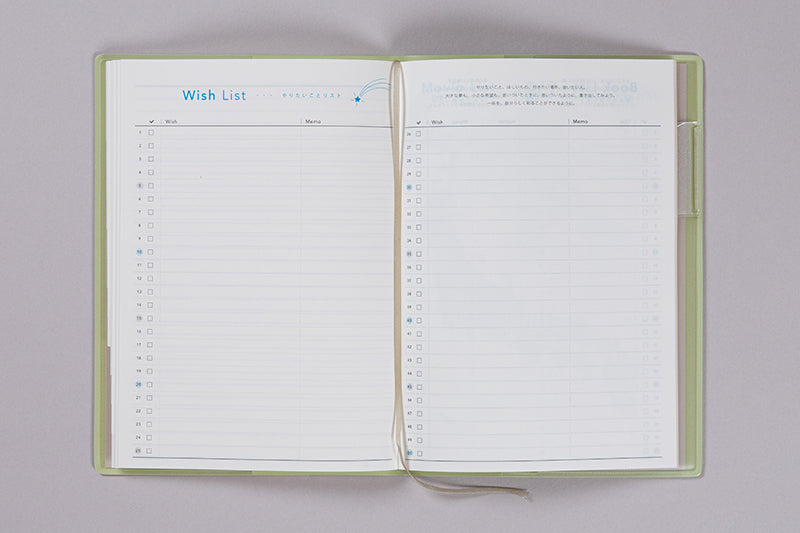 Wish List ・・・ やりたいことリスト
✓ Wish Memo
1
2
3
4
5
6
7
8
9
10
11
12
13
14
15
16
17
18
19
20
21
22
23
24
25
やりたいこと、ほしいもの、行きたい場所、会いたい人。
大きな夢も、小さな希望も、思いついたときに、思いついたように、書き出してみよう。
一年を、自分らしく彩ることができるように。
✓ Wish Memo
26
27
28
29
30
31
32
33
34
35
36
37
38
39
40
41
42
43
44
45
46
47
48
49
50